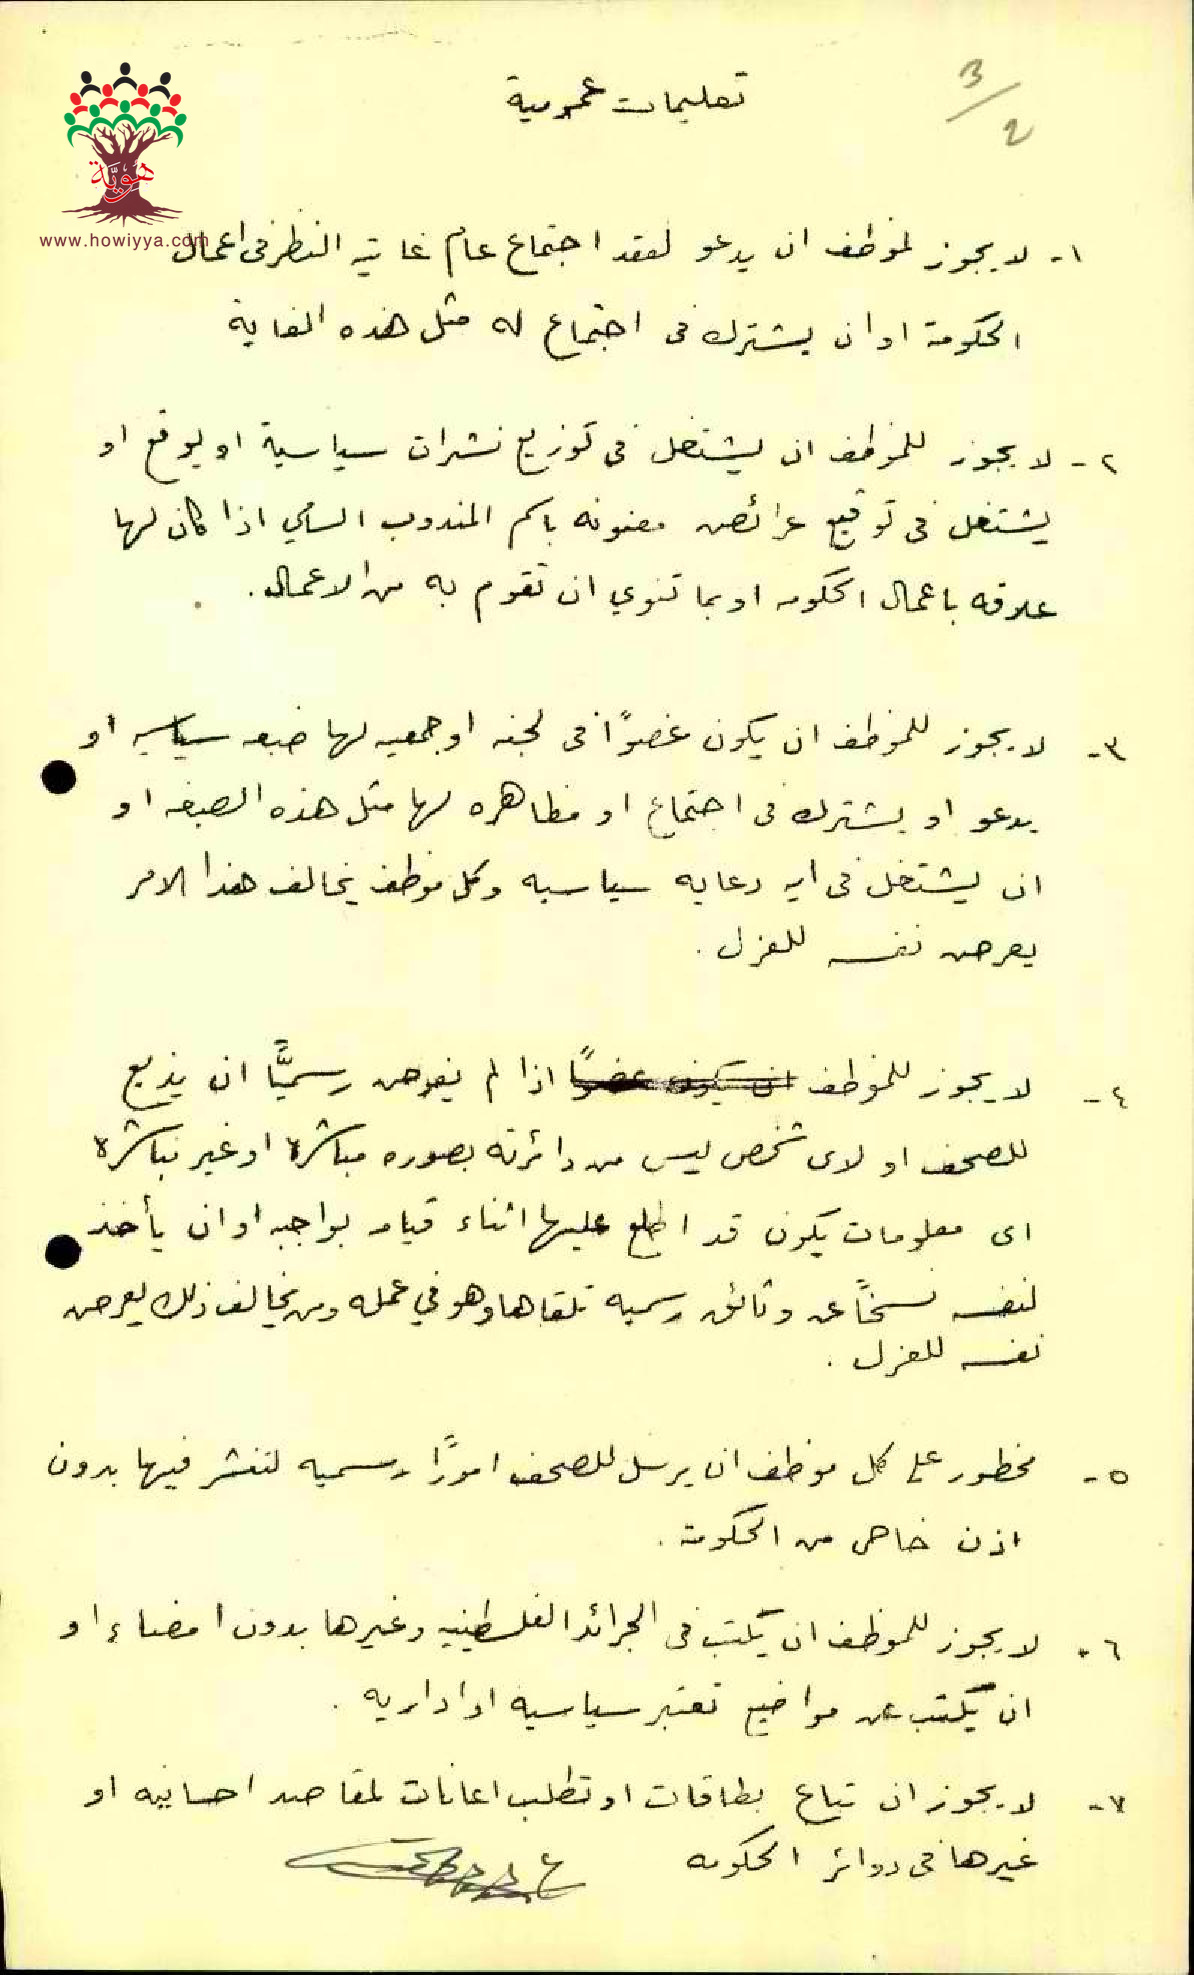 3/2
تعليمات عمومية
هوية
www.howiyya.com
١- لا يجوز لموظف ان يدعو لعقد اجتماع عام غايته النظر في اعمال
الحكومة او ان يشترك في اجتماع له مثل هذه الغاية
٢- لا يجوز للموظف ان يشتغل في توزيع نشرات سياسية او يوقع او
يشتغل في توقيع عرائض معنونه باسم المندوب السامي اذا كان لها
علاقه باعمال الحكومه او بما تنوي ان تقوم به من الاعمال.
٣- لا يجوز للموظف ان يكون عضوًا في لجنه او جمعيه لها صبغه سياسيه او
يدعو او يشترك في اجتماع او مظاهره لها مثل هذه الصبغه او
ان يشتغل في ايه دعايه سياسيه وكل موظف يخالف هذا الامر
يعرض نفسه للعزل.
٤- لا يجوز للموظف ان يكون عضوًا اذا لم يفوض رسميًّا ان يذيع
للصحف او لاى شخص ليس من دائرته بصوره مباشرة او غير مباشرة
اى معلومات يكون قد اطلع عليها اثناء قيامه بواجبه او ان يأخذ
لنفسه نسخًا عن وثائق رسميه تلقاها وهو في عمله ومن يخالف ذلك يعرض
نفسه للعزل.
٥- محظور على كل موظف ان يرسل للصحف امورًا رسميه لتنشر فيها بدون
اذن خاص من الحكومة.
٦- لا يجوز للموظف ان يكتب في الجرائد الفلسطينيه وغيرها بدون امضاء او
ان يكتب عن مواضيع تعتبر سياسيه او اداريه.
٧- لا يجوز ان تباع بطاقات او تطلب اعانات لمقاصد احسانيه او
غيرها في دوائر الحكومه